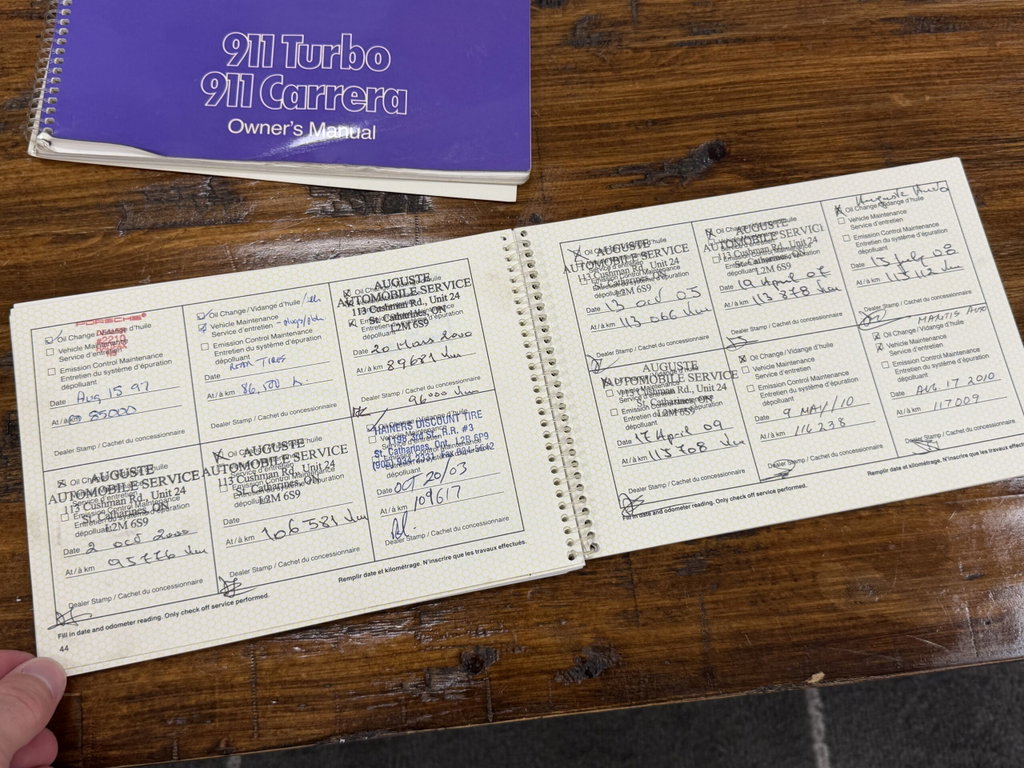 911 Turbo
911 Carrera
Owner's Manual
PORSCHE
Oil Change / Vidange d'huile
Vehicle Maintenance
Service d'entretien
Emission Control Maintenance
Entretien du système d'épuration
dépolluant
Date Aug 15 97
At / à km 85000
Dealer Stamp / Cachet du concessionnaire
Oil Change / Vidange d'huile
Vehicle Maintenance
Service d'entretien
Emission Control Maintenance
Entretien du système d'épuration
dépolluant
Date REAR TIRES
At / à km 86,500
Dealer Stamp / Cachet du concessionnaire
AUGUSTE
AUTOMOBILE SERVICE
113 Cushman Rd., Unit 24
St. Catharines, ON
L2M 6S9
dépolluant
Date 20 Mars 2000
At / à km 89681 km
Dealer Stamp / Cachet du concessionnaire
96000 km
AUGUSTE
AUTOMOBILE SERVICE
113 Cushman Rd., Unit 24
St. Catharines, ON
L2M 6S9
Date 2 Oct 2000
At / à km 95776 km
Dealer Stamp / Cachet du concessionnaire
AUGUSTE
AUTOMOBILE SERVICE
113 Cushman Rd., Unit 24
St. Catharines, ON
L2M 6S9
Date
At / à km 106581 km
Dealer Stamp / Cachet du concessionnaire
HAINERS DISCOUNT TIRE
St. Catharines, Ont. L2R 6P9
dépolluant
Date OCT 20/03
At / à km 109617
Dealer Stamp / Cachet du concessionnaire
Fill in date and odometer reading. Only check off service performed.
Remplir date et kilométrage. N'inscrire que les travaux effectués.
44
AUGUSTE
AUTOMOBILE SERVICE
113 Cushman Rd., Unit 24
St. Catharines, ON
L2M 6S9
Date 13 Oct 05
At / à km 113 066 km
Dealer Stamp / Cachet du concessionnaire
AUGUSTE
AUTOMOBILE SERVICE
113 Cushman Rd., Unit 24
St. Catharines, ON
L2M 6S9
dépolluant
Date 19 April 07
At / à km 113 878 km
Dealer Stamp / Cachet du concessionnaire
Auguste Auto
Oil Change / Vidange d'huile
Vehicle Maintenance
Service d'entretien
Emission Control Maintenance
Entretien du système d'épuration
dépolluant
Date 15 July 08
At / à km 115112 km
Dealer Stamp / Cachet du concessionnaire
AUGUSTE
AUTOMOBILE SERVICE
113 Cushman Rd., Unit 24
St. Catharines, ON
L2M 6S9
Date 17 April 09
At / à km 115708 km
Dealer Stamp / Cachet du concessionnaire
Oil Change / Vidange d'huile
Vehicle Maintenance
Service d'entretien
Emission Control Maintenance
Entretien du système d'épuration
dépolluant
Date 9 MAY/10
At / à km 116238
Dealer Stamp / Cachet du concessionnaire
Oil Change / Vidange d'huile
Vehicle Maintenance
Service d'entretien
Emission Control Maintenance
Entretien du système d'épuration
dépolluant
Date AUG 17 2010
At / à km 117009
Dealer Stamp / Cachet du concessionnaire
Fill in date and odometer reading. Only check off service performed.
Remplir date et kilométrage. N'inscrire que les travaux effec